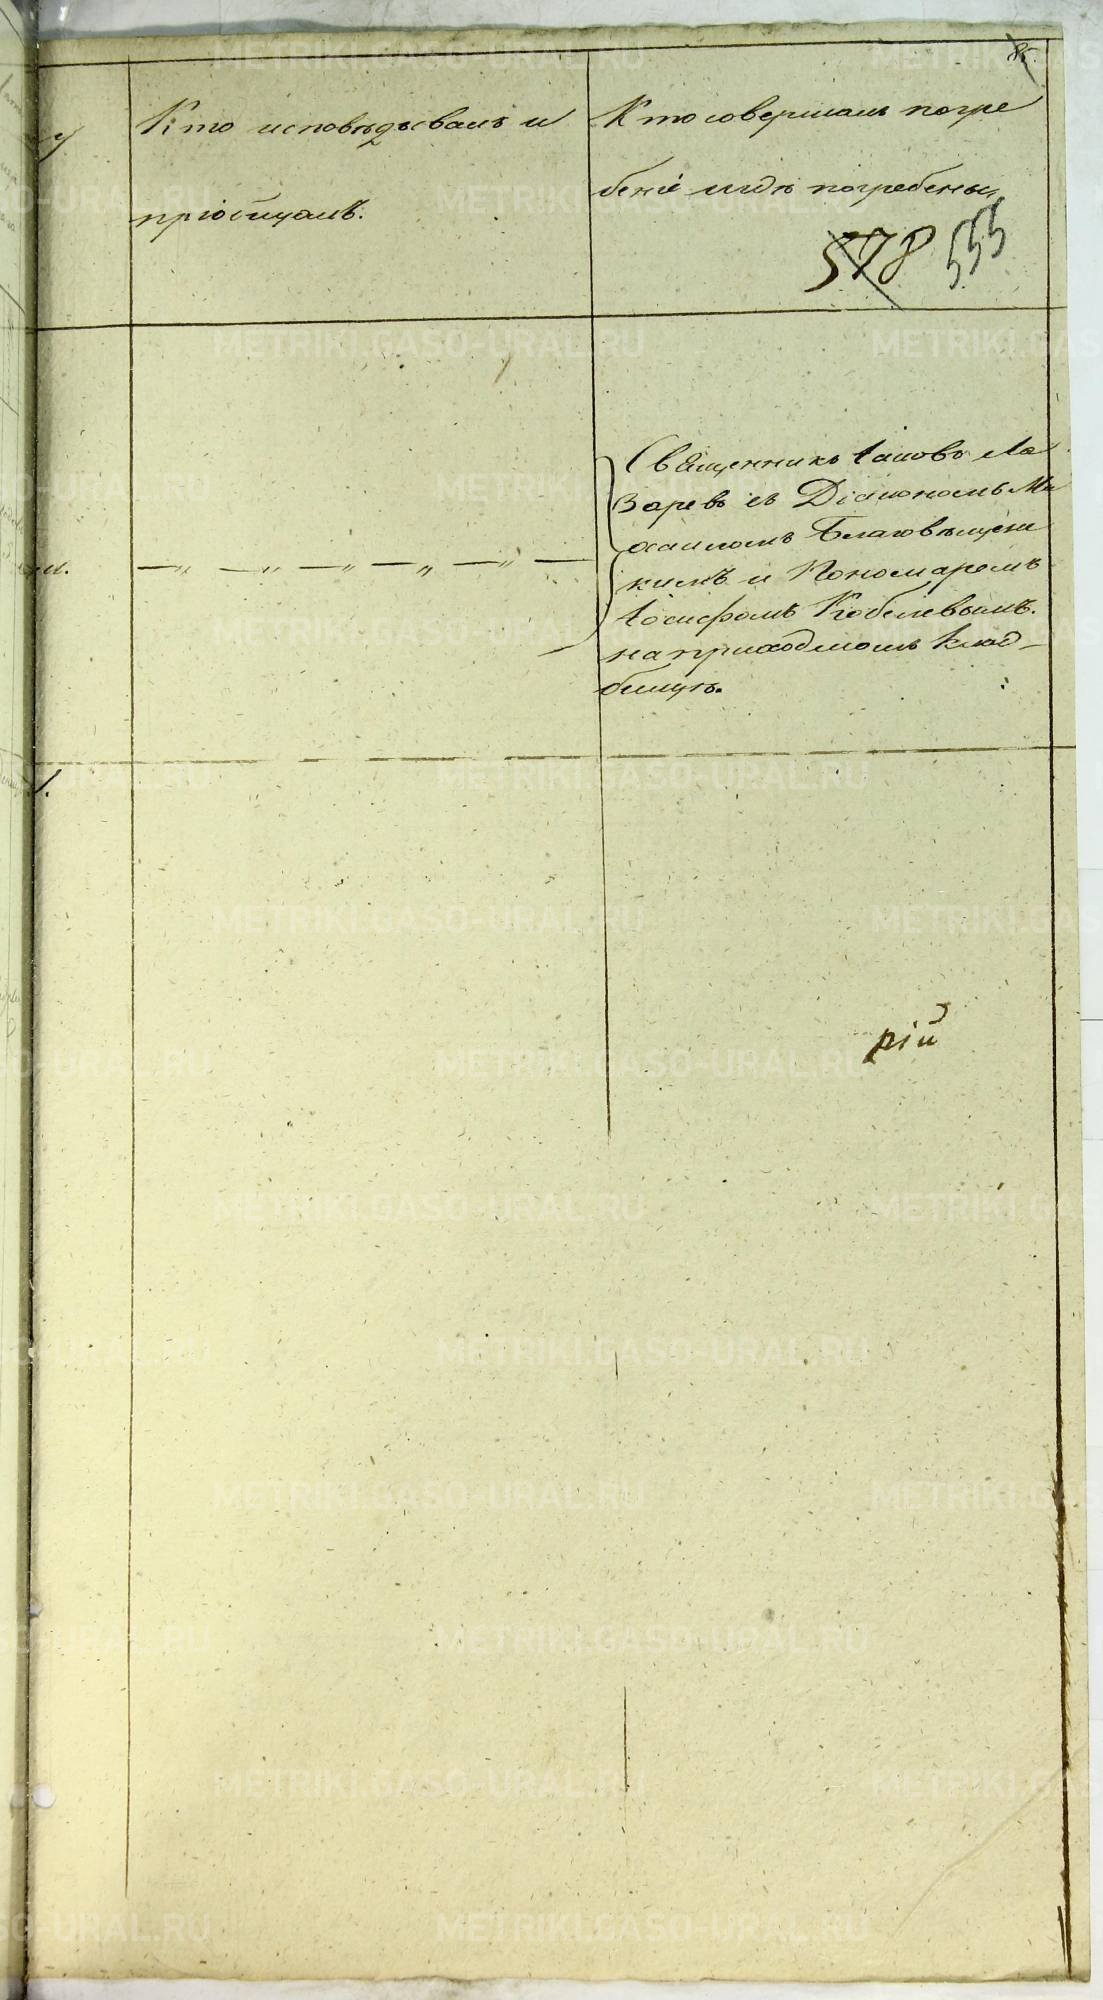 Кто исповѣдывалъ и
пріобщалъ.
Кто совершалъ погре
беніе и гдѣ погребены,
578 555
Священникъ Іаковъ Ла
заревъ съ Діакономъ Ми
хаиломъ Благовѣщенс
кимъ и Пономаремъ
Іосифомъ Кобелевымъ.
на приходскомъ клад-
бищѣ.
рій
METRIKI.GASO-URAL.RU